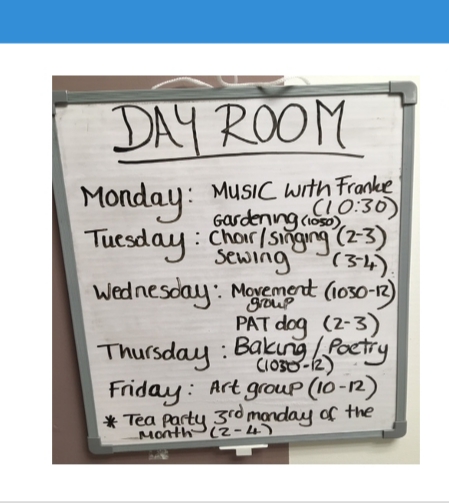 DAY ROOM
Monday: MUSIC with Frankie
(10:30)
Gardening (1030)
Tuesday: Choir/singing (2-3)
Sewing (3-4)
Wednesday: Movement (1030-12)
group
PAT dog (2-3)
Thursday: Baking / Poetry
(1030-12)
Friday: Art group (10-12)
* Tea Party 3rd monday of the
Month (2-4)